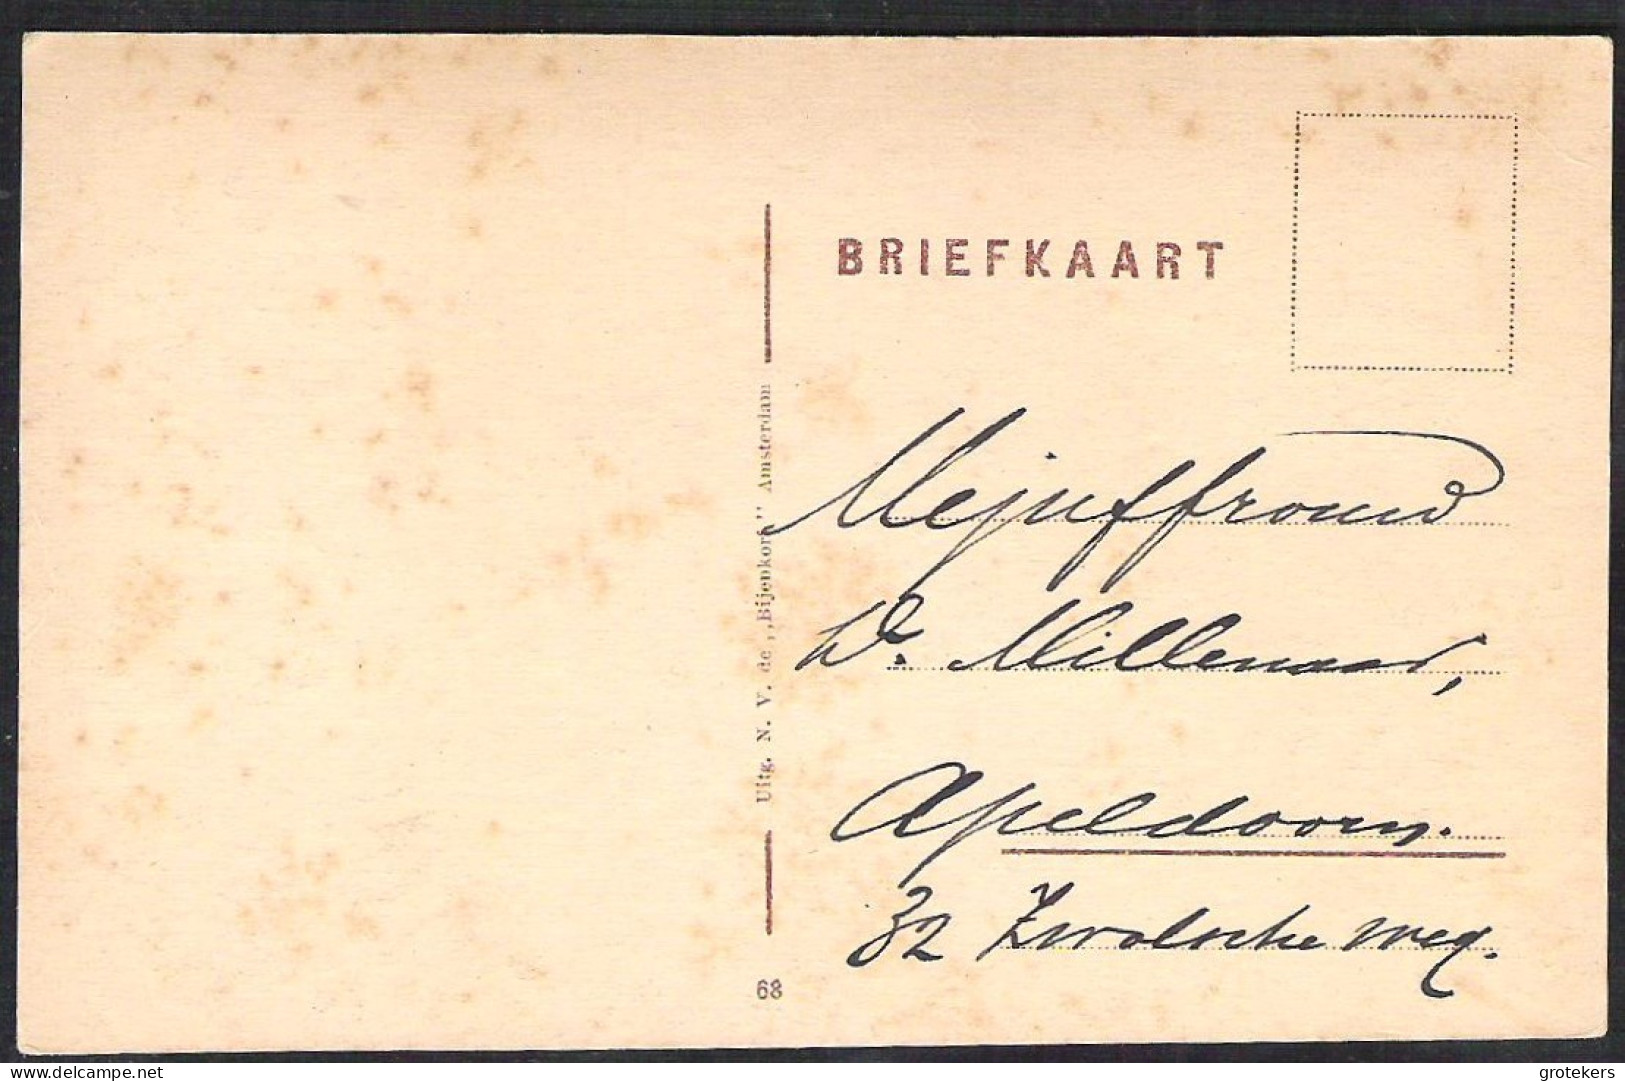 BRIEFKAART
Uitg. N. V. de „Bijenkorf" Amsterdam
Mejuffrouw
W. Millenaar,
Apeldoorn.
32 Zwolsche weg.
68
www.delcampe.net
grotekers